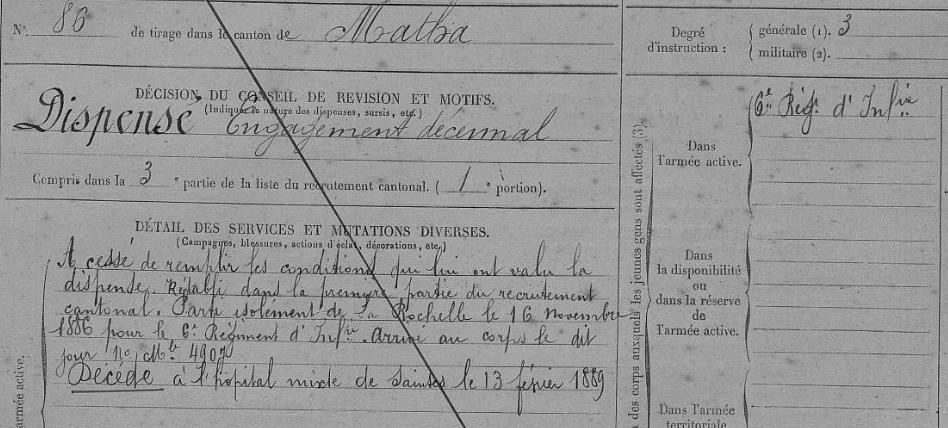 N°. 86 de tirage dans le canton de Matha
DÉCISION DU CONSEIL DE REVISION ET MOTIFS.
(Indiquer la nature des dispenses, sursis, etc.)
Dispensé Engagement décennal
Compris dans la 3 e partie de la liste du recrutement cantonal. ( 1 e portion).
DÉTAIL DES SERVICES ET MUTATIONS DIVERSES.
(Campagnes, blessures, actions d'éclat, décorations, etc.)
A cessé de remplir les conditions qui lui ont valu la
dispense. Rétabli dans la première partie du recrutement
cantonal. Parti isolement de La Rochelle le 16 novembre
1886 pour le 6e Régiment d'Infrie. Arrivé au corps le dit
jour no. Mle 4907
Décédé à l'hôpital mixte de Saintes le 13 février 1889
armée active.
Degré
d'instruction :
générale (1). 3
militaire (2).
n des corps auxquels les jeunes gens sont affectés (3).
Dans
l'armée active.
6e Régt d'Infrie
Dans
la disponibilité
ou
dans la réserve
de
l'armée active.
Dans l'armée
territoriale